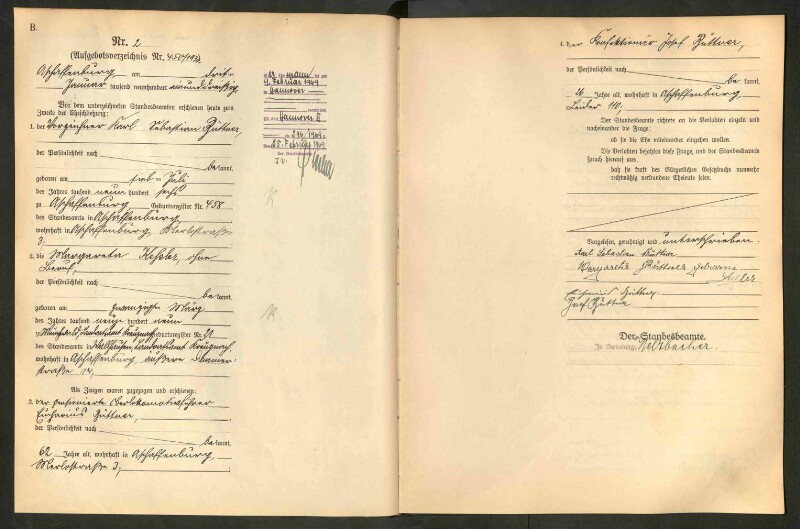 B.
Nr. 2
(Aufgebotsverzeichnis Nr.
Aschaffenburg, am dritten
Januar tausend neunhundert einunddreißig
Vor dem unterzeichneten Standesbeamten erschienen heute zum
Zwecke der Eheschließung:
1. der Vorzeichner Karl Sebastian Büttner,
der Persönlichkeit nach
bekannt,
geboren am Juli
des Jahres tausend neun hundert sechs
zu Aschaffenburg, Geburtsregister Nr. 458
des Standesamts in Aschaffenburg,
wohnhaft in Aschaffenburg, Merlostraße
3,
2. die Margareta Kessler, ohne
Beruf,
der Persönlichkeit nach
bekannt,
geboren am zwanzigsten März
des Jahres tausend neun hundert neun
zu Landesamt Kreuznach Geburtsregister Nr. 22
des Standesamts in Kreuznach,
wohnhaft in Aschaffenburg, äußere
straße 14,
Als Zeugen waren zugezogen und erschienen:
3. der pensionierte Oberlokomotivführer
Eucharius Büttner,
der Persönlichkeit nach
bekannt,
62 Jahre alt, wohnhaft in Aschaffenburg,
Merlostraße 3,
mann
9. Februar 1949
Hannover
Hannover II
234/1949
25. Februar 1949
J.V.
4. der Konfektionär Josef Büttner,
der Persönlichkeit nach
bekannt,
26 Jahre alt, wohnhaft in Aschaffenburg,
110,
Der Standesbeamte richtete an die Verlobten einzeln und
nacheinander die Frage:
ob sie die Ehe miteinander eingehen wollen.
Die Verlobten bejahten diese Frage, und der Standesbeamte
sprach hierauf aus,
daß sie kraft des Bürgerlichen Gesetzbuchs nunmehr
rechtmäßig verbundene Eheleute seien.
Vorgelesen, genehmigt und unterschrieben.
Karl Sebastian Büttner
Margareta Büttner geborene
Kessler
Eucharius Büttner
Josef Büttner
Der Standesbeamte.
In Vertretung: